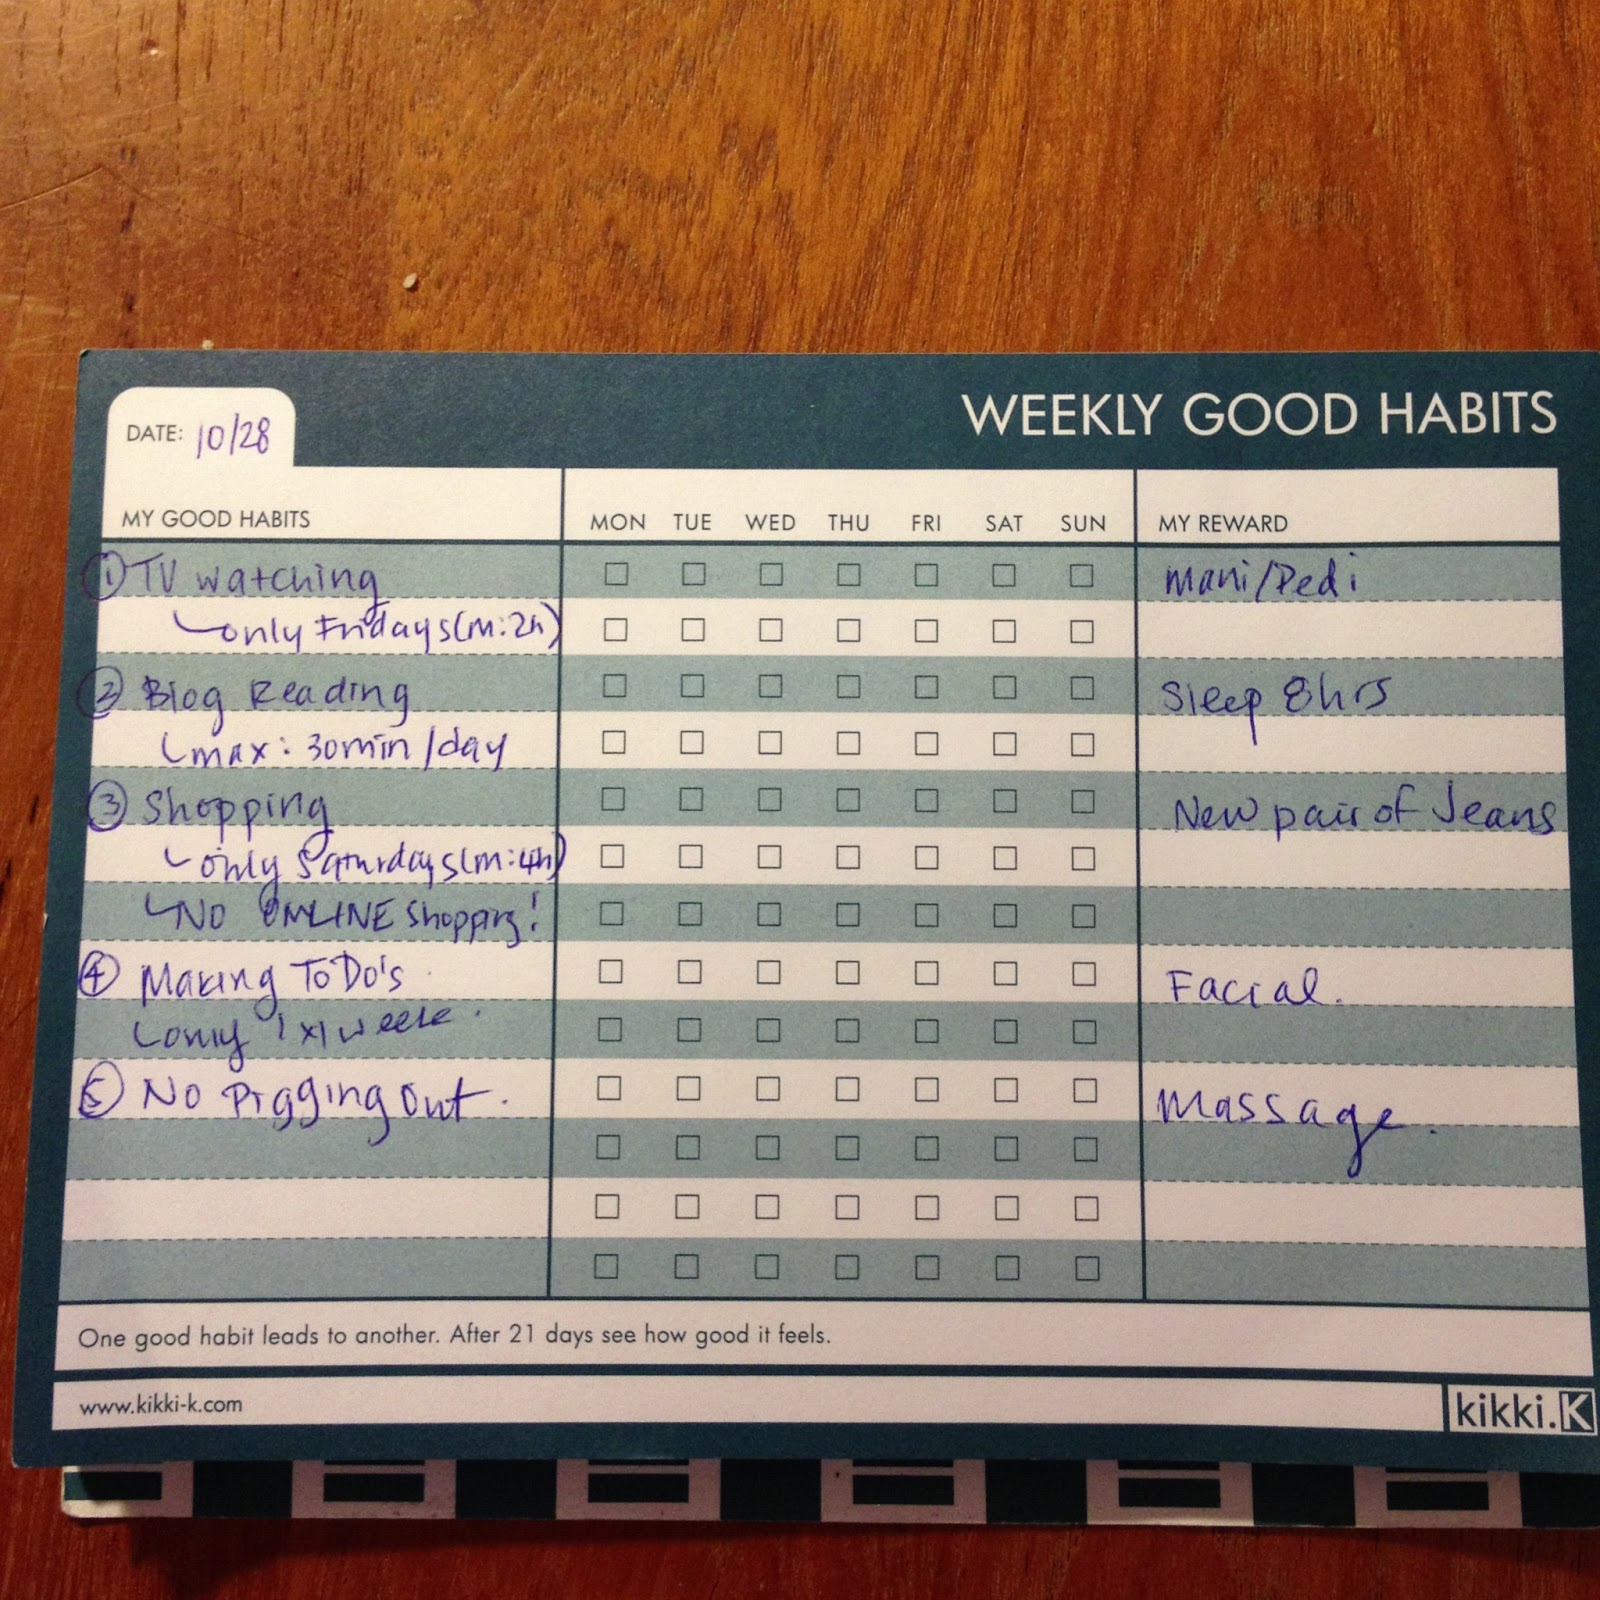 WEEKLY GOOD HABITS
DATE: 10/28
MY GOOD HABITS MON TUE WED THU FRI SAT SUN MY REWARD
① TV watching Mani/Pedi
only Fridays (m:2h)
② Blog Reading Sleep 8hrs
max: 30min/day
③ Shopping New pair of Jeans
only Saturdays (m:4h)
NO ONLINE Shopping!
④ Making ToDo's Facial.
only 1x/week.
⑤ No Pigging Out. Massage.
One good habit leads to another. After 21 days see how good it feels.
www.kikki-k.com kikki.K